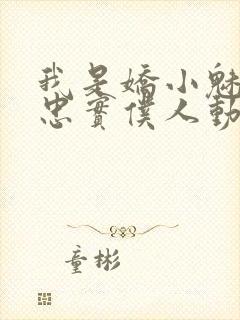 我是嬌小魅
忠實僕人動
童彬